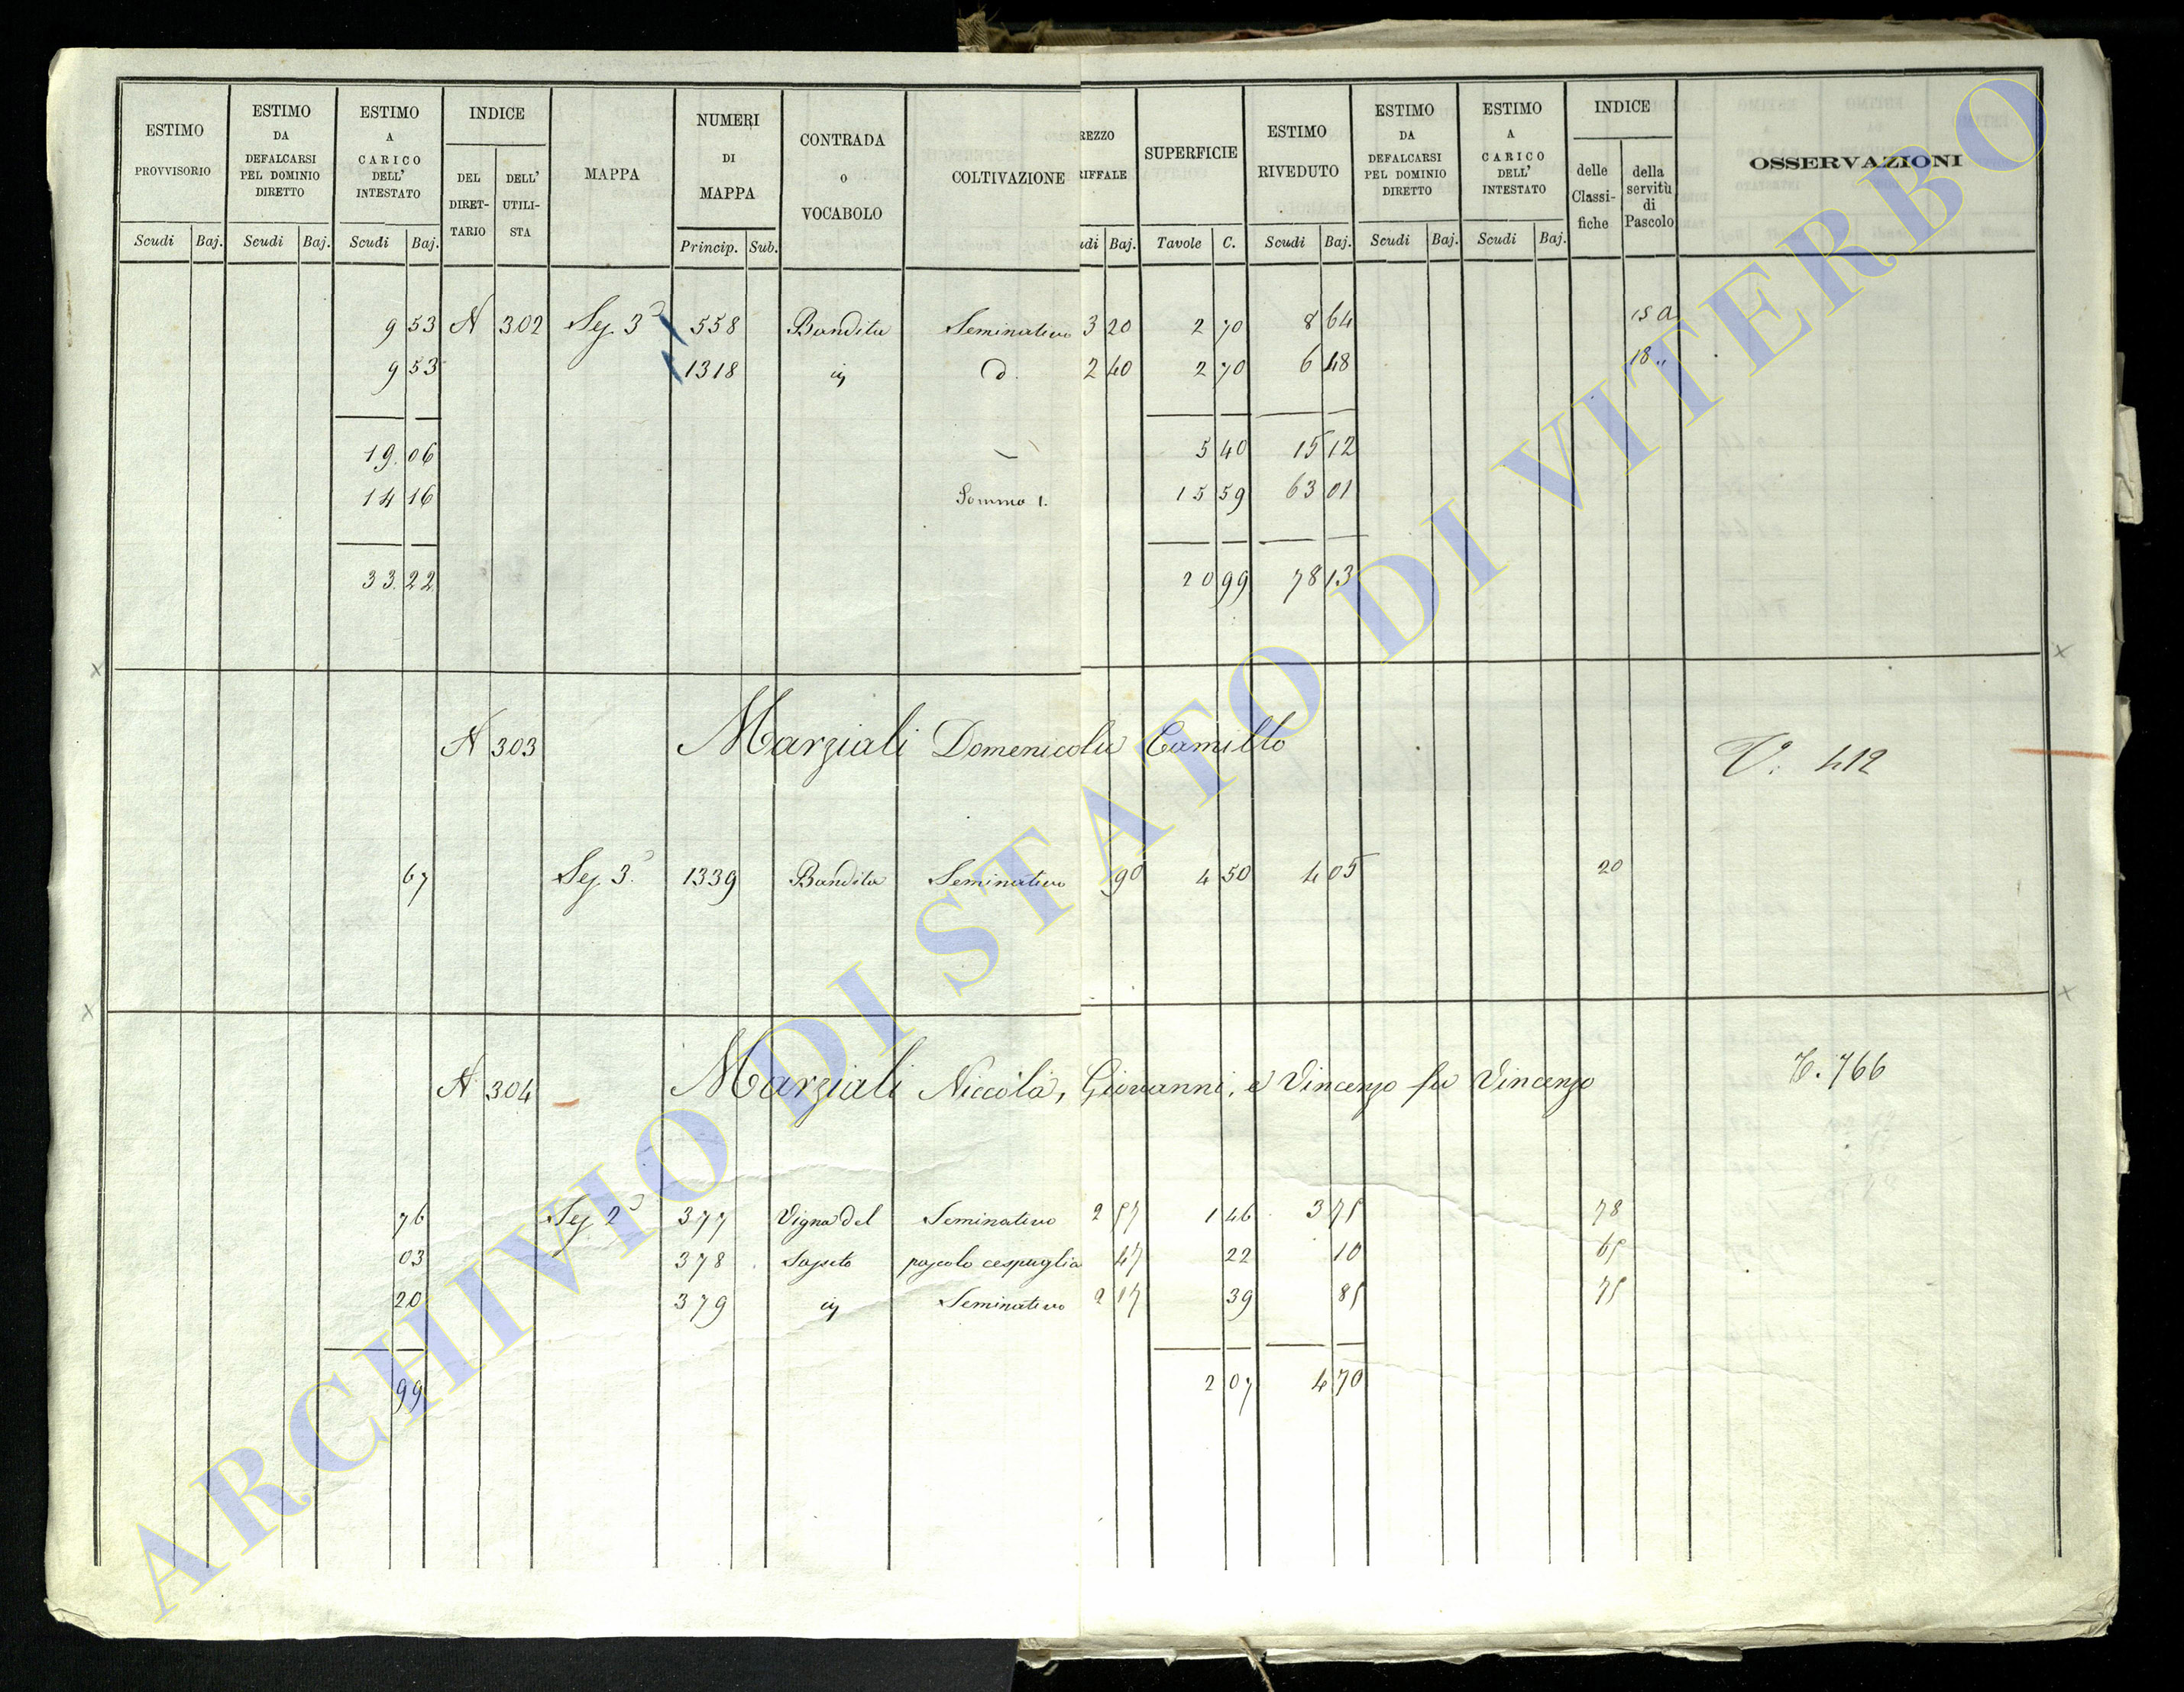 ESTIMO PROVVISORIO
ESTIMO DA DEFALCARSI PEL DOMINIO DIRETTO
ESTIMO A CARICO DELL' INTESTATO
INDICE
DEL DIRET-TARIO
DELL' UTILI-STA
MAPPA
NUMERI DI MAPPA
CONTRADA O VOCABOLO
COLTIVAZIONE
REZZO RIFFALE
SUPERFICIE
ESTIMO RIVEDUTO
ESTIMO DA DEFALCARSI PEL DOMINIO DIRETTO
ESTIMO A CARICO DELL' INTESTATO
INDICE
delle Classi-fiche
della servitù di Pascolo
OSSERVAZIONI
Scudi Baj. Scudi Baj. Scudi Baj. Princip. Sub. udi Baj. Tavole C. Scudi Baj. Scudi Baj. Scudi Baj.
9 53 N 302 Sez. 3ª 558 Bandita Seminativo 3 20 2 70 8 64 15 a
9 53 1318 ivi d. 2 40 2 70 6 48 18 "
19.06 5 40 15 12
14 16 Somma 1. 15 59 63 01
33.22 20 99 78 13
N 303 Marziali Domenicola Camillo V. 412
67 Sez. 3ª 1339 Bandita Seminativo 90 4 50 4 05 20
N 304 Marziali Niccola, Giovanni, e Vincenzo fu Vincenzo 766
76 Sez. 2ª 377 Vigna del Seminativo 2 57 1 46 3 75 78
03 378 pascolo cespuglia 47 22 10 65
20 379 ivi Seminativo 2 17 39 85 75
99 2 07 4 70
ARCHIVIO DI STATO DI VITERBO